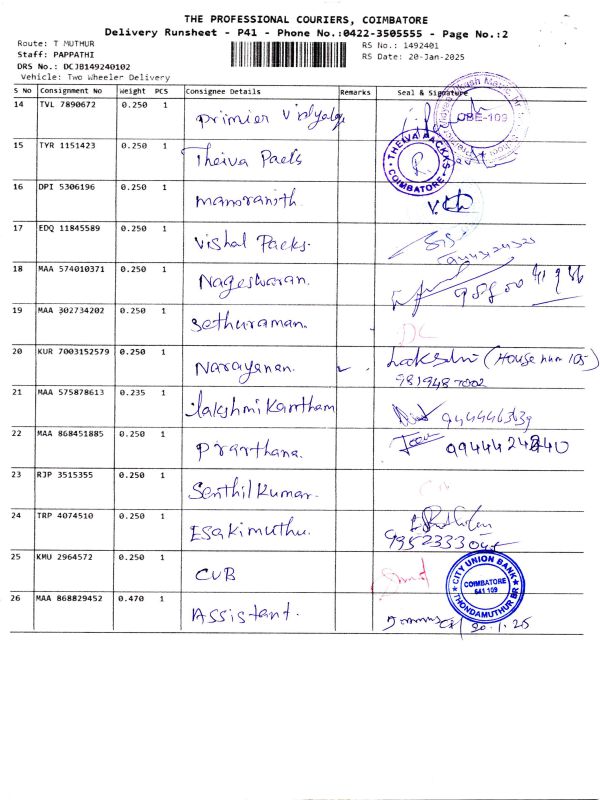 THE PROFESSIONAL COURIERS, COIMBATORE
Delivery Runsheet - P41 - Phone No.:0422-3505555 - Page No.:2
Route: T MUTHUR
RS No.: 1492401
Staff: PAPPATHI
RS Date: 20-Jan-2025
DRS No.: DCJB149240102
Vehicle: Two Wheeler Delivery
S No Consignment No Weight PCS Consignee Details Remarks Seal & Signature
14 TVL 7890672 0.250 1 Primier
CBE-109
15 TYR 1151423 0.250 1 Theiva Packs
THEIVA PACKKS
COIMBATORE
16 DPI 5306196 0.250 1 manoranjith.
17 EDQ 11845589 0.250 1 Vishal Packs.
18 MAA 574010371 0.250 1 Nageswaran.
19 MAA 302734202 0.250 1 Sethuraman. DC
20 KUR 7003152579 0.250 1 Narayanan. (House num 105)
21 MAA 575878613 0.235 1
22 MAA 868451885 0.250 1 Prarthana.
23 RJP 3515355 0.250 1 Senthil Kumar.
24 TRP 4074510 0.250 1 Esakimuthu.
25 KMU 2964572 0.250 1 CUB
CITY UNION BANK
COIMBATORE
641 109
THONDAMUTHUR BR
26 MAA 868829452 0.470 1 Assistant. 20.1.25